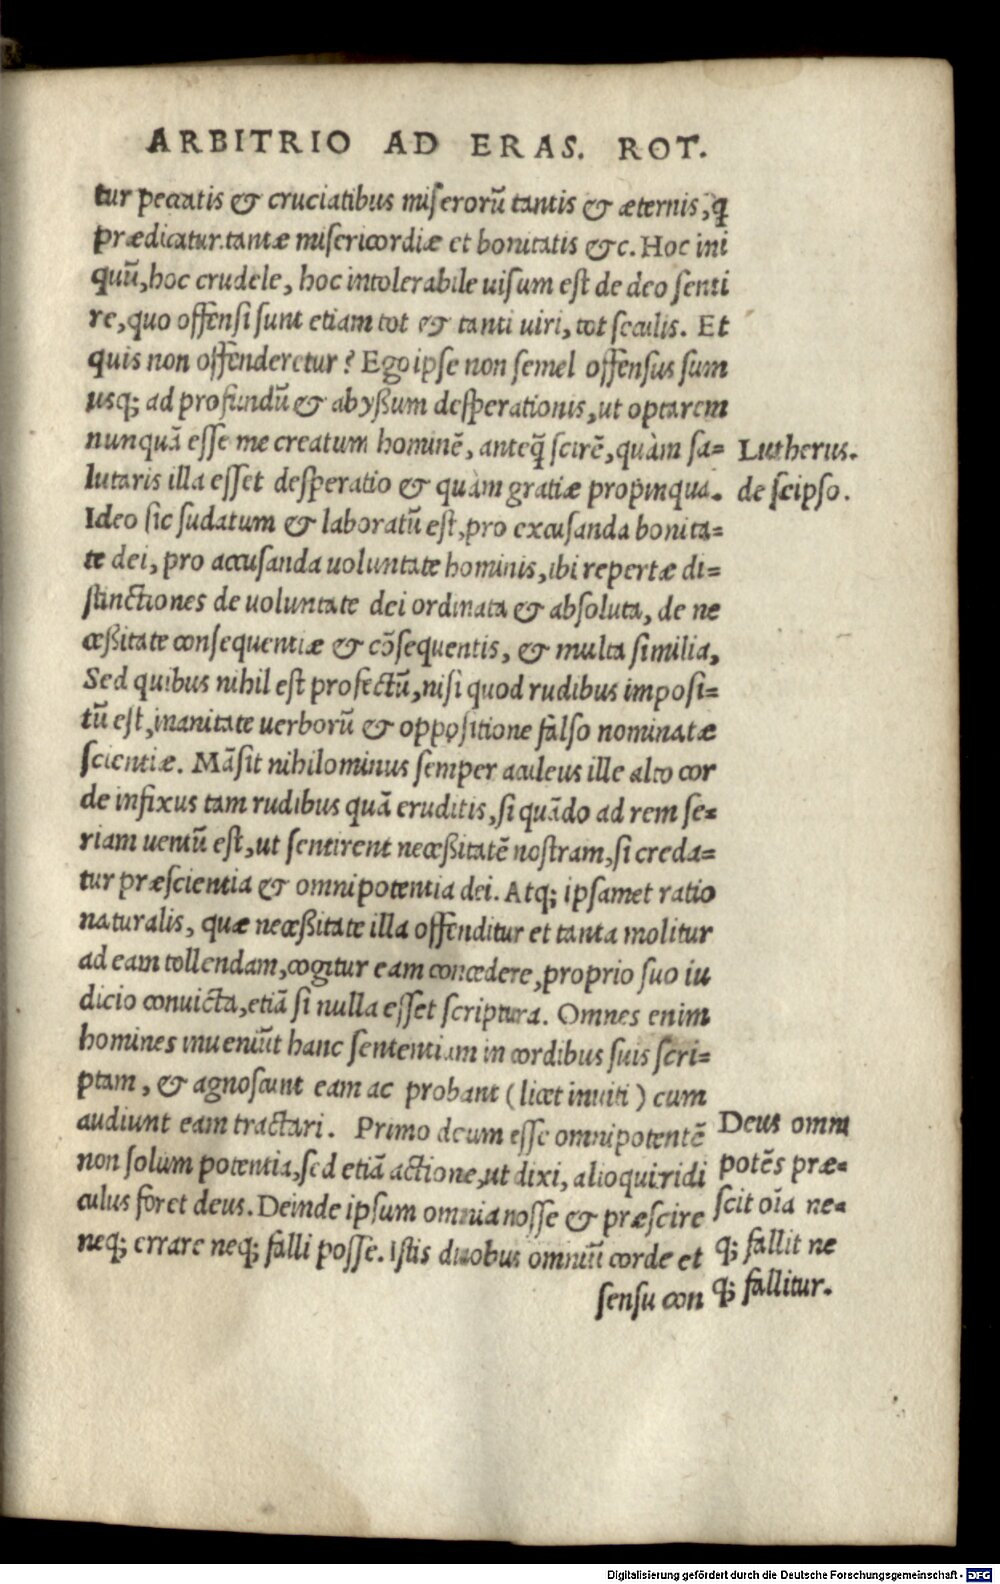 ARBITRIO AD ERAS. ROT.
tur peccatis & cruciatibus miserorū tantis & æternis, q̄
prædicatur.tantæ misericordiæ et bonitatis &c. Hoc ini
quū,hoc crudele, hoc intolerabile uisum est de deo senti
re,quo offensi sunt etiam tot & tanti uiri, tot seculis. Et
quis non offenderetur? Ego ipse non semel offensus sum
usq; ad profundū & abyßum desperationis,ut optarem
nunquā esse me creatum hominē, anteq̄ scirē,quàm sa=
lutaris illa esset desperatio & quàm gratiæ propinqua.
Ideo sic sudatum & laboratū est,pro excusanda bonita=
te dei, pro accusanda uoluntate hominis, ibi repertæ di=
stinctiones de uoluntate dei ordinata & absoluta, de ne
ceßitate consequentiæ & cōsequentis, & multa similia,
Sed quibus nihil est profectū,nisi quod rudibus imposi=
tū est,inanitate uerborū & oppositione falso nominatæ
scientiæ. Māsit nihilominus semper aculeus ille alto cor
de infixus tam rudibus quā eruditis,si quādo ad rem se=
riam uentū est,ut sentirent neceßitatē nostram,si creda=
tur præscientia & omnipotentia dei. Atq; ipsamet ratio
naturalis, quæ neceßitate illa offenditur et tanta molitur
ad eam tollendam,cogitur eam concedere,proprio suo iu
dicio conuicta,etiā si nulla esset scriptura. Omnes enim
homines inueniūt hanc sententiam in cordibus suis scri=
ptam, & agnoscunt eam ac probant (licet inuiti) cum
audiunt eam tractari. Primo deum esse omnipotentē
non solum potentia,sed etiā actione,ut dixi, alioqui ridi
culus foret deus. Deinde ipsum omnia nosse & præscire
neq; errare neq; falli posse. Istis duobus omniū corde et
sensu con
Lutherus.
de seipso.
Deus omni
potēs præ=
scit oīa ne=
q; fallit ne
q; fallitur.
Digitalisierung gefördert durch die Deutsche Forschungsgemeinschaft - DFG